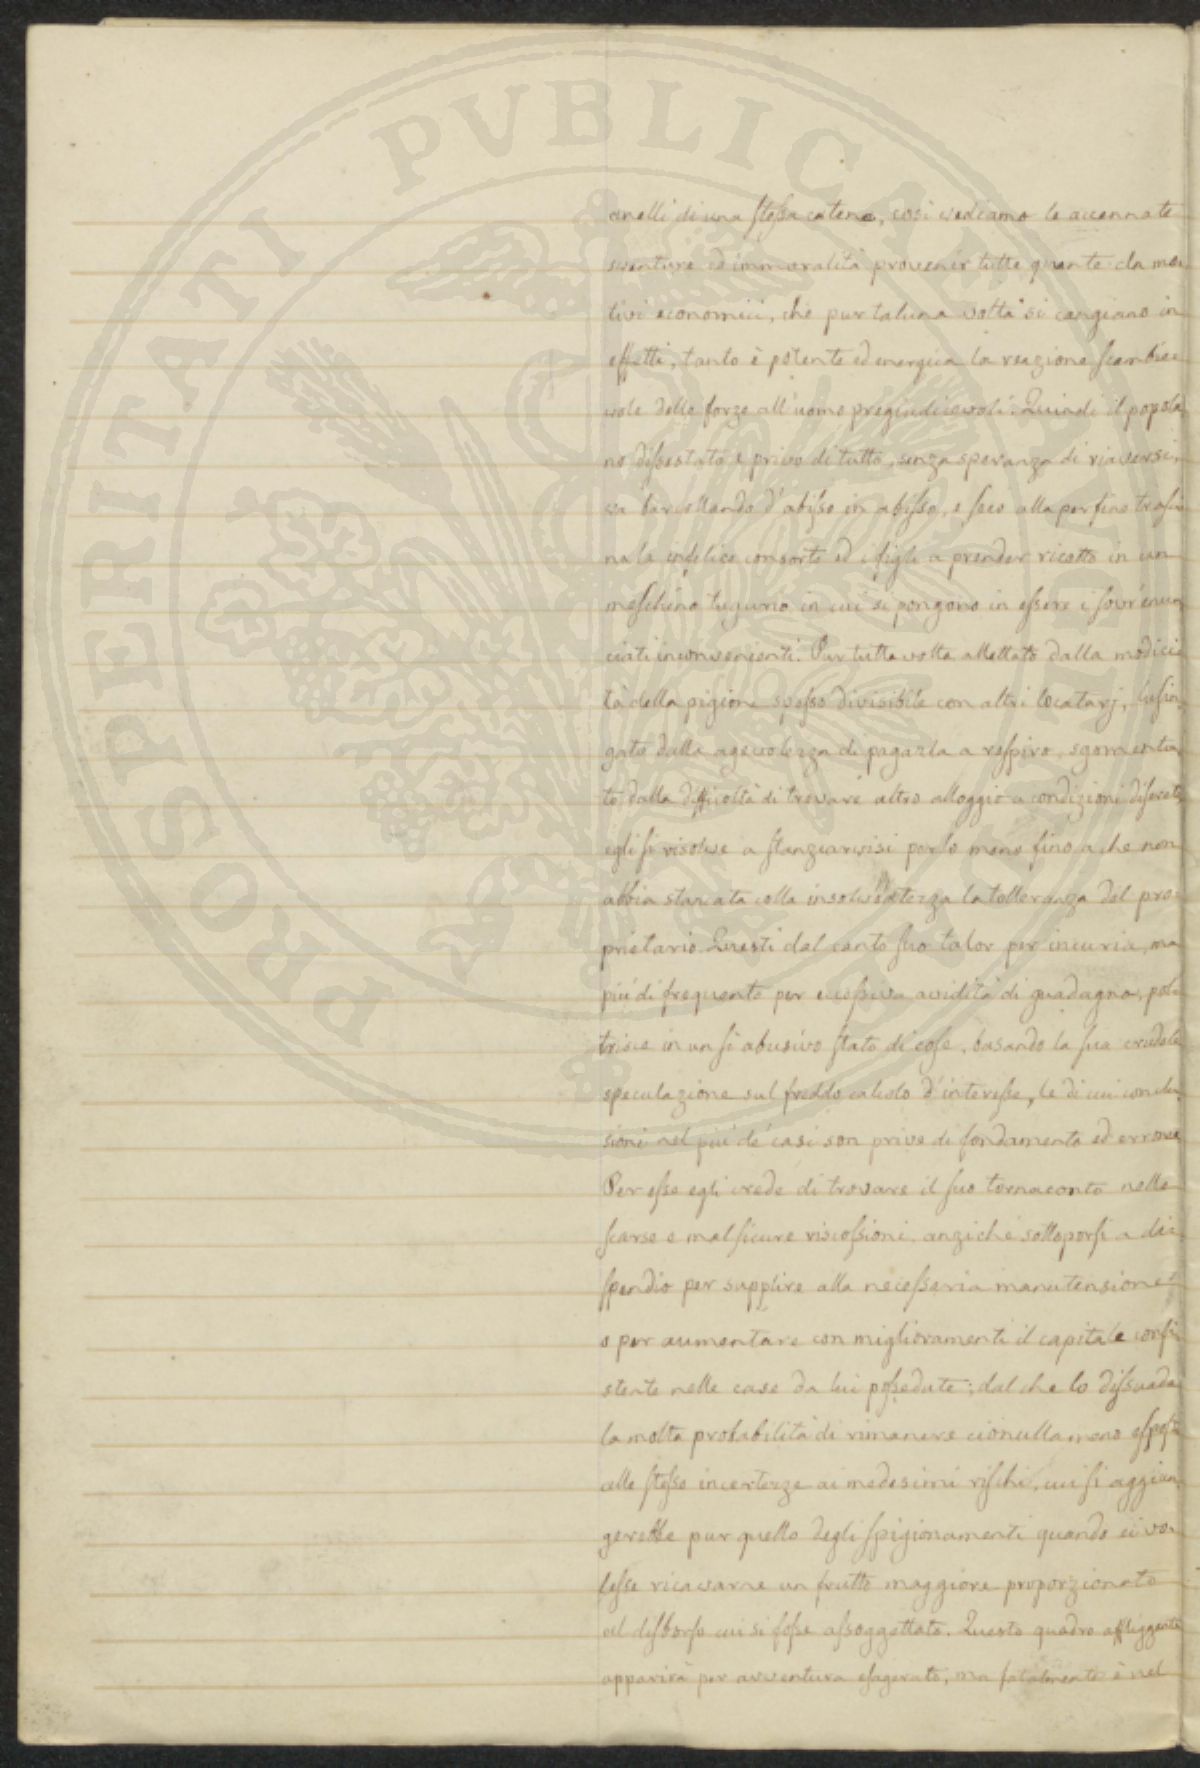 PROSPERITATI PVBLICAE
anelli di una stessa catena, così vediamo le accennate
sventure ed immoralità provenir tutte quante da mo-
tivi economici, che pur taluna volta si cangiano in
effetti, tanto è potente ed energica la reazione scambie-
vole delle forze all'uomo pregiudicevoli. Quindi il popola-
no dissestato e privo di tutto, senza speranza di riaversi,
va barcollando d'abisso in abisso, e seco alla perfine trasci-
na la infelice consorte ed i figli a prender ricetto in un
meschino tugurio in cui si pongono in essere i sovr'enun-
ciati inconvenienti. Pur tuttavolta allettato dalla modici-
tà della pigione spesso divisibile con altri locatarj, lusin-
gato dalla agevolezza di pagarla a respiro, sgomenta-
to dalla difficoltà di trovare altro alloggio a condizioni discrete
egli si risolve a stanziarvisi per lo meno fino a che non
abbia stancata colla insolvatezza la tolleranza del pro-
prietario. Questi dal canto suo talor per incuria, ma
più di frequente per eccessiva avidità di guadagno, pol-
trisce in un sì abusivo stato di cose, basando la sua crudele
speculazione sul freddo calcolo d'interesse, le di cui conclu-
sioni nel più de' casi son prive di fondamento ed erronee
Per esse egli crede di trovare il suo tornaconto nelle
scarse e mal sicure riscossioni, anziché sottoporsi a di-
spendio per supplire alla necessaria manutensione
o per aumentare con miglioramenti il capitale consi-
stente nelle case da lui possedute; dal che lo dissuade
la molta probabilità di rimanere cionullameno esposto
alle stesse incertezze ai medesimi rischi, cui si aggiun-
gerebbe pur quello degli spigionamenti quando ei vo-
lesse ricavarne un frutto maggiore proporzionato
al disborso cui si fosse assoggettato. Questo quadro affliggente
apparirà per avventura esagerato, ma fatalmente è nel